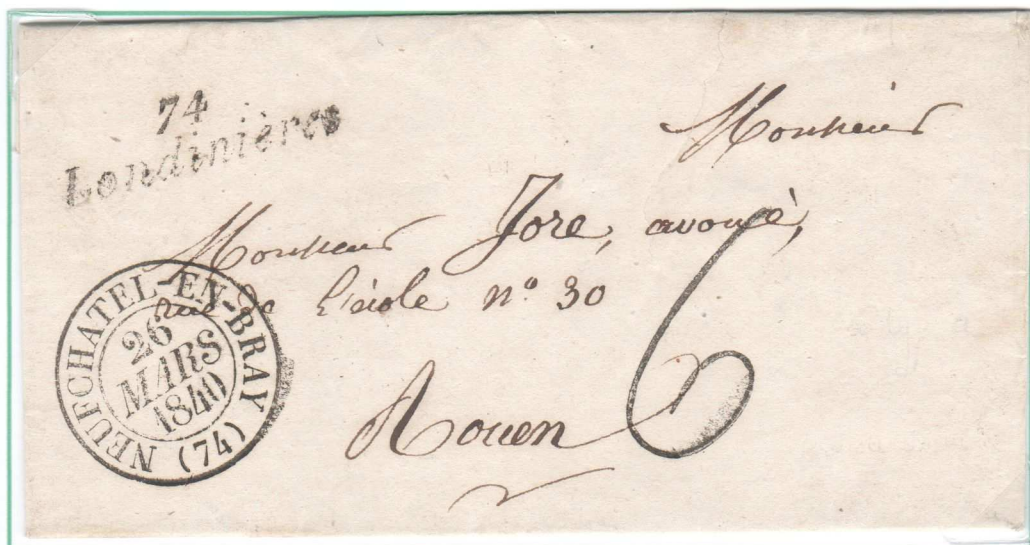 74
Londinières
Monsieur
Monsieur Jore, avoué,
rue de l'école n° 30
Rouen
6
NEUFCHATEL-EN-BRAY (74)
26
MARS
1840